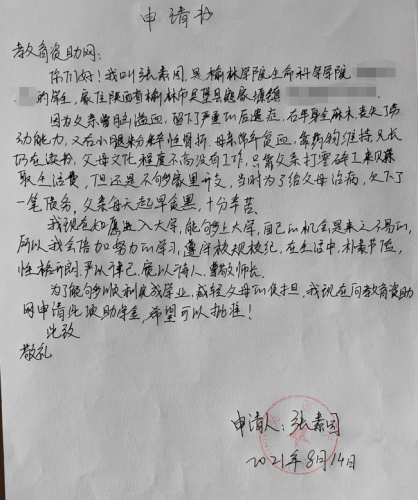 申请书
教育资助网：
你们好！我叫张素因，是榆林学院生命科学学院
的学生，家住陕西省榆林市吴堡县
因为父亲曾脑溢血，留下了严重的后遗症，右半身麻木丧失了劳
动能力，又右小腿粉碎性骨折，母亲常年贫血，靠药物维持，兄长
仍在读书，父母文化程度不高没有工作，只靠父亲打零碎工来赚
取生活费，但还是不够家里开支，当时为了给父母治病，欠下了
一笔债务，父亲每天起早贪黑，十分辛苦。
我现在如愿进入大学，能够上大学，自己的机会是来之不易的，
所以我会倍加努力的学习，遵守校规校纪，在生活中，朴素节俭，
性格开朗，严以律己，宽以待人，尊敬师长。
为了能够顺利完成学业，减轻父母的负担，我现在向教育资助
网申请此项助学金，希望可以批准！
此致
敬礼
申请人：张素因
2021年8月14日